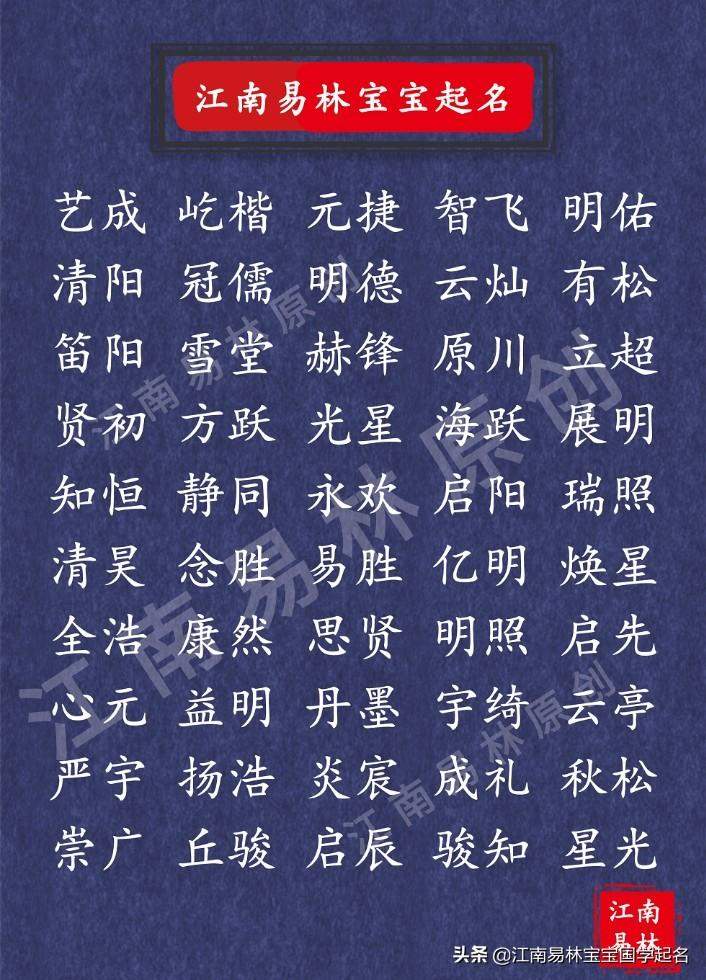 江南易林宝宝起名
艺成 屹楷 元捷 智飞 明佑
清阳 冠儒 明德 云灿 有松
笛阳 雪堂 赫锋 原川 立超
贤初 方跃 光星 海跃 展明
知恒 静同 永欢 启阳 瑞照
清昊 念胜 易胜 亿明 焕星
全浩 康然 思贤 明照 启先
心元 益明 丹墨 宇绮 云亭
严宇 扬浩 炎宸 成礼 秋松
崇广 丘骏 启辰 骏知 星光
江南易林原创
江南易林原创
江南易林原创
江南
易林
头条 @江南易林宝宝国学起名